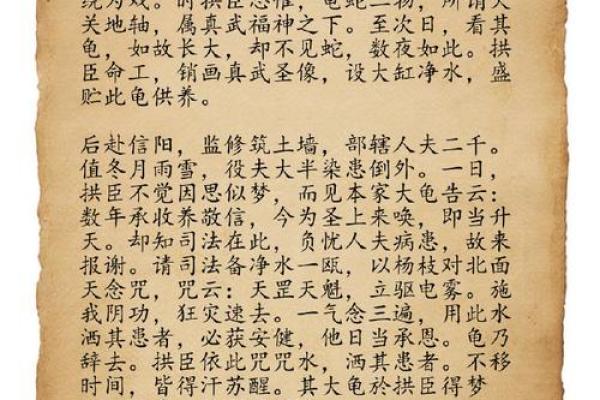 为戏。时拱臣惟，龟蛇二物，所谓天
关地轴，属真武福神之下。至次日，看其
龟，如故长大，却不见蛇，数夜如此。拱
臣命工，销画真武圣像，设大缸净水，盛
贮此龟供养。
后赴信阳，监修筑土墙，部辖人夫二千。
值冬月雨雪，役夫大半染患倒外。一日，
拱臣不觉因思似梦，而见本家大龟告云：
数年承收养敬信，今为圣上来唤，即当升
天。却知司法在此，负忧人夫病患，故来
报谢。请司法备净水一瓯，以杨枝对北面
天念咒，咒云：天罡天魁，立驱电雾。施
我阴功，狂灾速去。一气念三遍，用此水
洒其患者，必获安健，他日当承恩。龟乃
辞去。拱臣依此咒咒水，洒其患者。不移
时间，皆得汗苏醒。其大龟於拱臣得梦